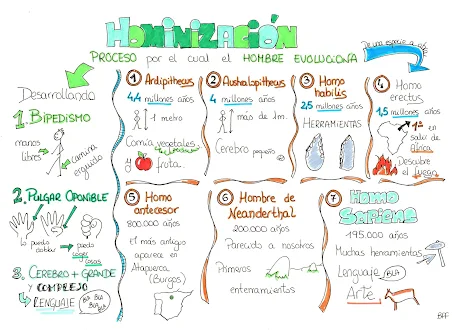 HOMINIZACIÓN
PROCESO por el cual el HOMBRE EVOLUCIONA
De una especie a otra
Desarrollando
1. BIPEDISMO
manos
libres
camina
erguido
2. PULGAR OPONIBLE
lo puedo
doblar
puedo
coger
cosas
3. CEREBRO + GRANDE
Y COMPLEJO
LENGUAJE
BLA BLA
BLA
1 Ardipithecus
4,4 millones años
1 metro
Comía vegetales
y fruta.
2 Australopithecus
4 millones años
más de 1m.
Cerebro pequeño
3 Homo
habilis
2,5 millones años
HERRAMIENTAS
4 Homo
erectus
1,5 millones años
1º en
salir de
África
Descubre
el fuego
5 Homo
antecesor
800.000 años
El más antiguo
aparece en
Atapuerca
(Burgos)
6 Hombre de
Neanderthal
200.000 años
Parecido a nosotros
Primeros
enterramientos
7 HOMO
SAPIENS
195.000 años
Muchas herramientas
Lenguaje BLA
Arte.